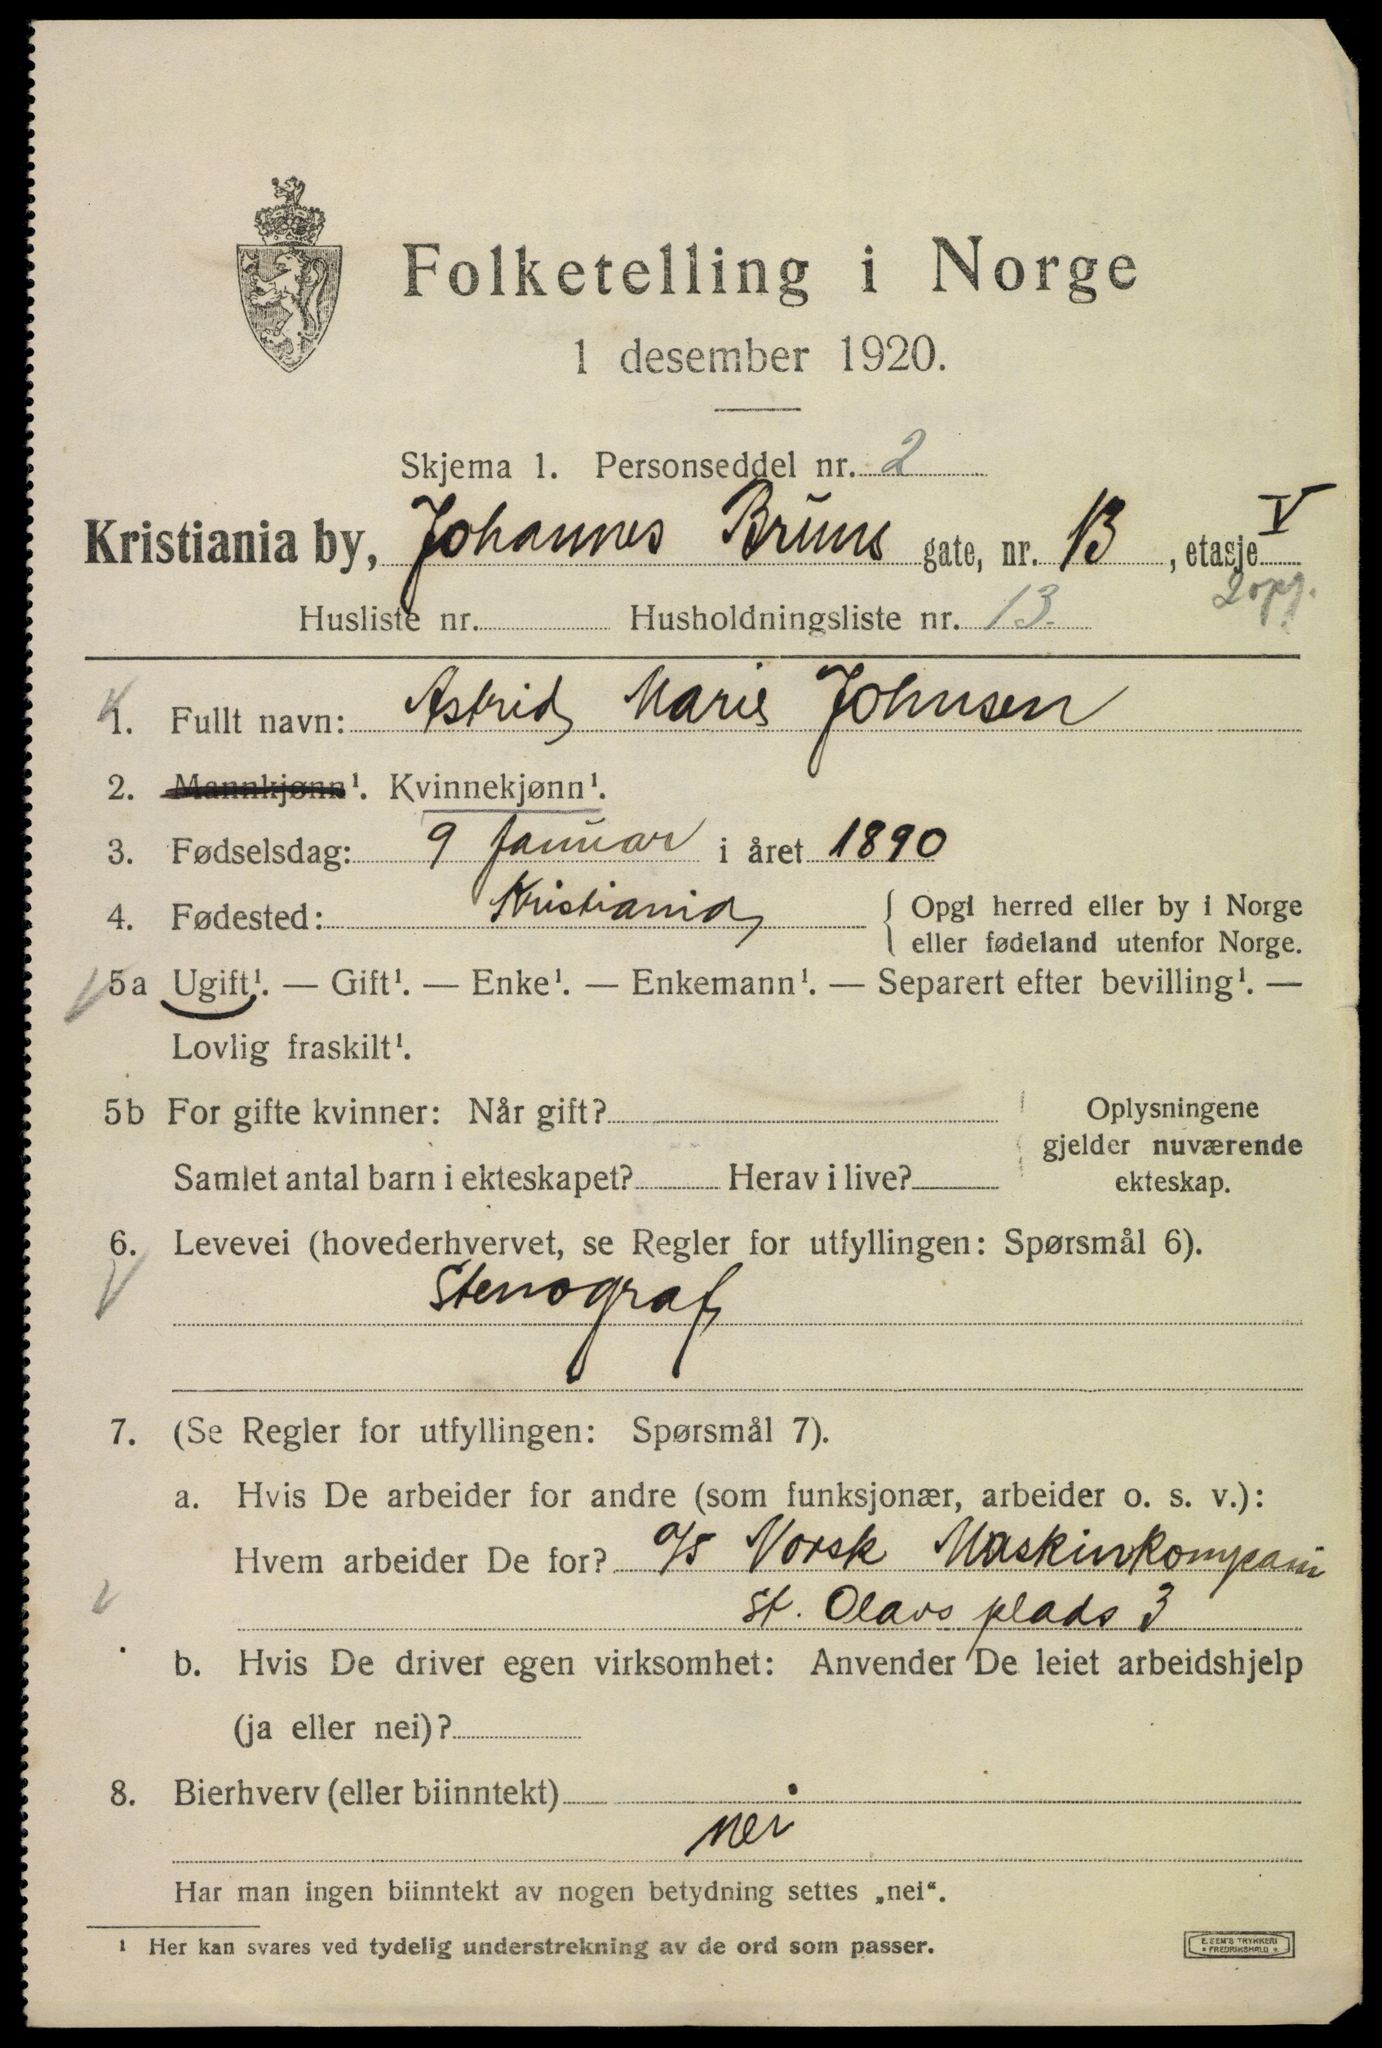 Folketelling i Norge
1 desember 1920.
Skjema 1. Personseddel nr. 2
Kristiania by, Johannes Bruns gate, nr. 13, etasje V
Husliste nr. Husholdningsliste nr. 13. 2 opg.
1. Fullt navn: Astrid Marie Johnsen
2. Mannkjønn¹. Kvinnekjønn¹.
3. Fødselsdag: 9 Januar i året 1890
4. Fødested: Kristiania { Opgi herred eller by i Norge
eller fødeland utenfor Norge.
5a Ugift¹. — Gift¹. — Enke¹. — Enkemann¹. — Separert efter bevilling¹. —
Lovlig fraskilt¹.
5b For gifte kvinner: Når gift? Oplysningene
gjelder nuværende
Samlet antal barn i ekteskapet? Herav i live? ekteskap.
6. Levevei (hovederhvervet, se Regler for utfyllingen: Spørsmål 6).
Stenograf
7. (Se Regler for utfyllingen: Spørsmål 7).
a. Hvis De arbeider for andre (som funksjonær, arbeider o. s. v.):
Hvem arbeider De for? a/s Norsk Maskinkompani
St. Olavs plads 3
b. Hvis De driver egen virksomhet: Anvender De leiet arbeidshjelp
(ja eller nei)?
8. Bierhverv (eller biinntekt)
nei
Har man ingen biinntekt av nogen betydning settes „nei“.
¹ Her kan svares ved tydelig understrekning av de ord som passer.
E. SEM'S TRYKKERI
* FREDRIKSHALD *